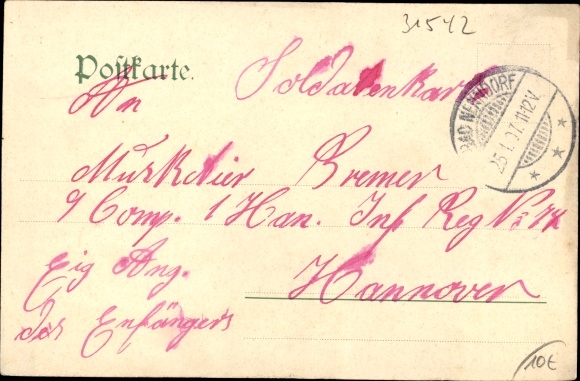 31542
Postkarte.
Soldatenkar
An
BAD NENNDORF
25.1.07.11-12V.
Musketier Bremer
9 Comp. 1 Han. Inf Reg No 74
Hannover
Eig Ang.
des Enfängers
10€